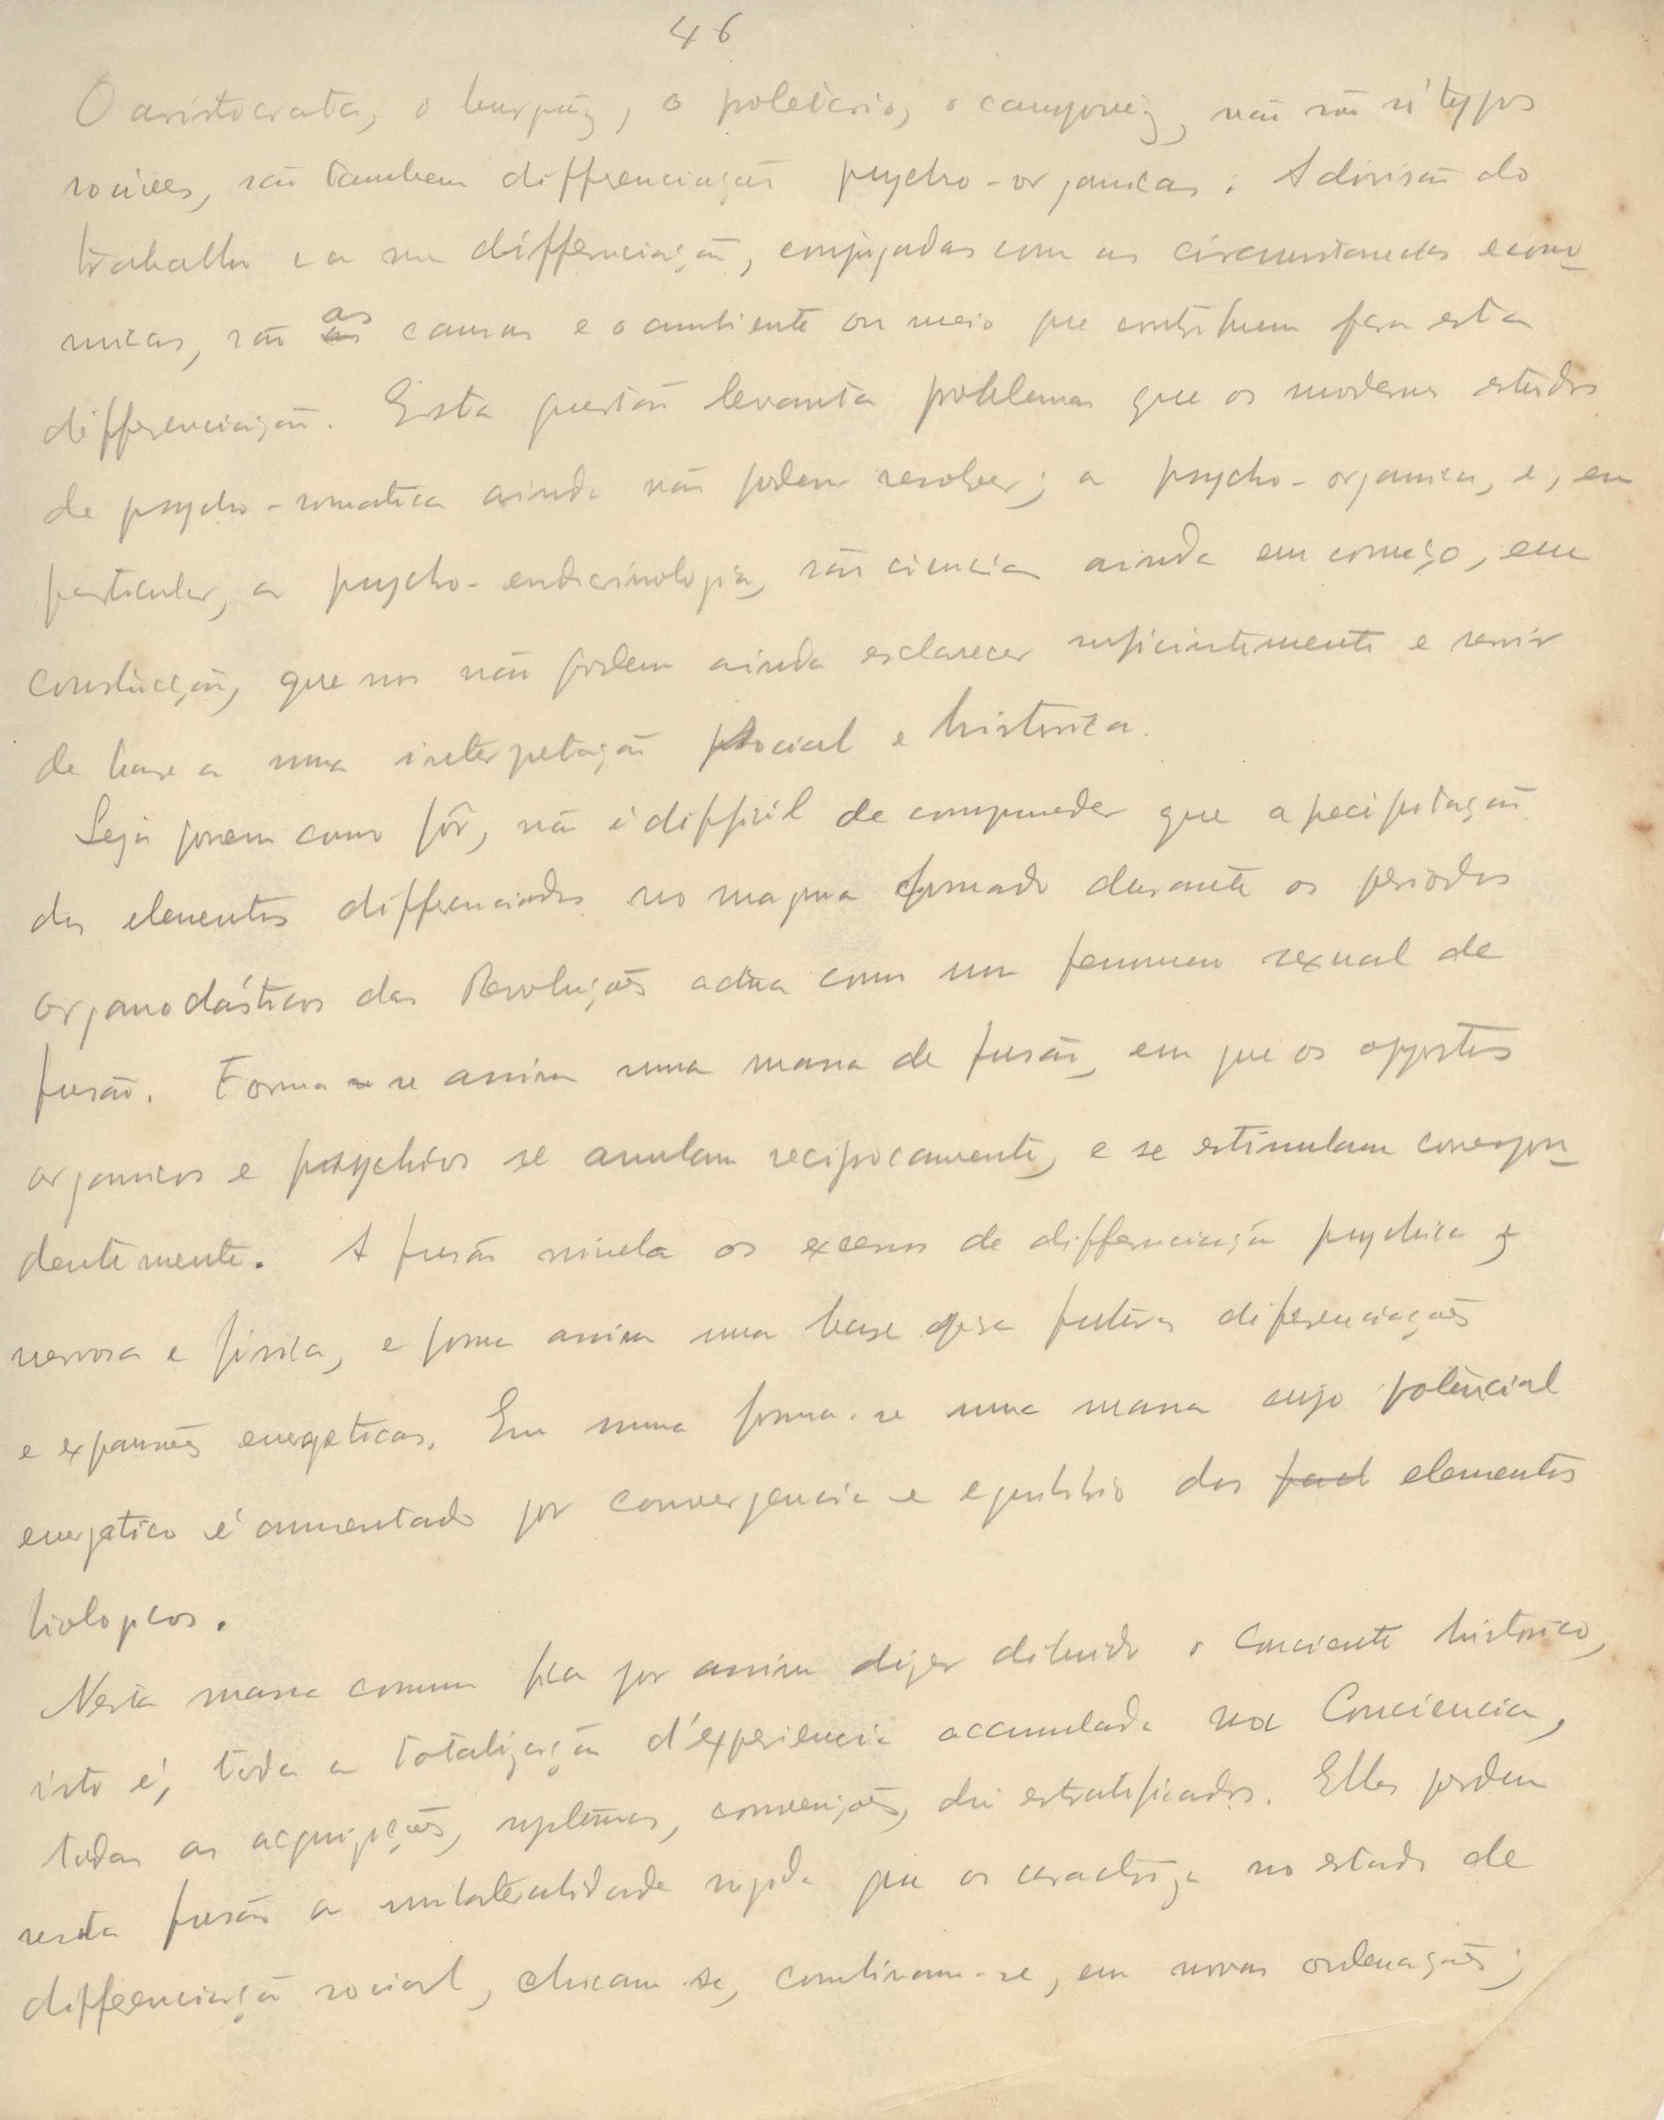 46
O aristocrata, o burguêz, o proletario, o camponêz, não são só typos
sociaes, são tambem differenciações psycho-organicas. A divisão do
trabalho e a sua differenciação, conjugadas com as circumstancias econo-
micas, são as causas e o ambiente ou meio que contribuem para esta
differenciação. Esta questão levanta problemas que os modernos estudos
de psycho-somatica ainda não podem resolver; a psycho-organica, e, em
particular, a psycho-endocrinologia, são ciencias ainda em começo, em
construcção, que nos não podem ainda esclarecer suficientemente e servir
de base a uma interpretação social e historica.
Seja porem como fôr, não é difficil de comprender que a precipitação
dos elementos differenciados no magma formado durante os periodos
organoclásticos das Revoluções actua como um fenomeno sexual de
fusão. Forma-se assim uma massa de fusão, em que os oppostos
organicos e psychicos se anulam reciprocamente, e se estimulam correspon-
dentemente. A fusão nivela os excessos de differenciação psychica,
nervosa e fisica, e forma assim uma base para futuras diferenciações
e expansões energeticas. Em suma forma-se uma massa cujo potêncial
energetico é aumentado por convergencia e equilibrio dos elementos
biologicos.
Nesta massa comum fica por assim dizer diluido o Conciente historico,
isto é, toda a totalização d'experiencia accumulada na Conciencia,
todas as acquisições, systemas, convenções, estratificados. Elles perdem
nesta fusão a unilateralidade rigida que os caracteriza no estado de
differenciação social, chocam-se, combinam-se, em novas ordenações;